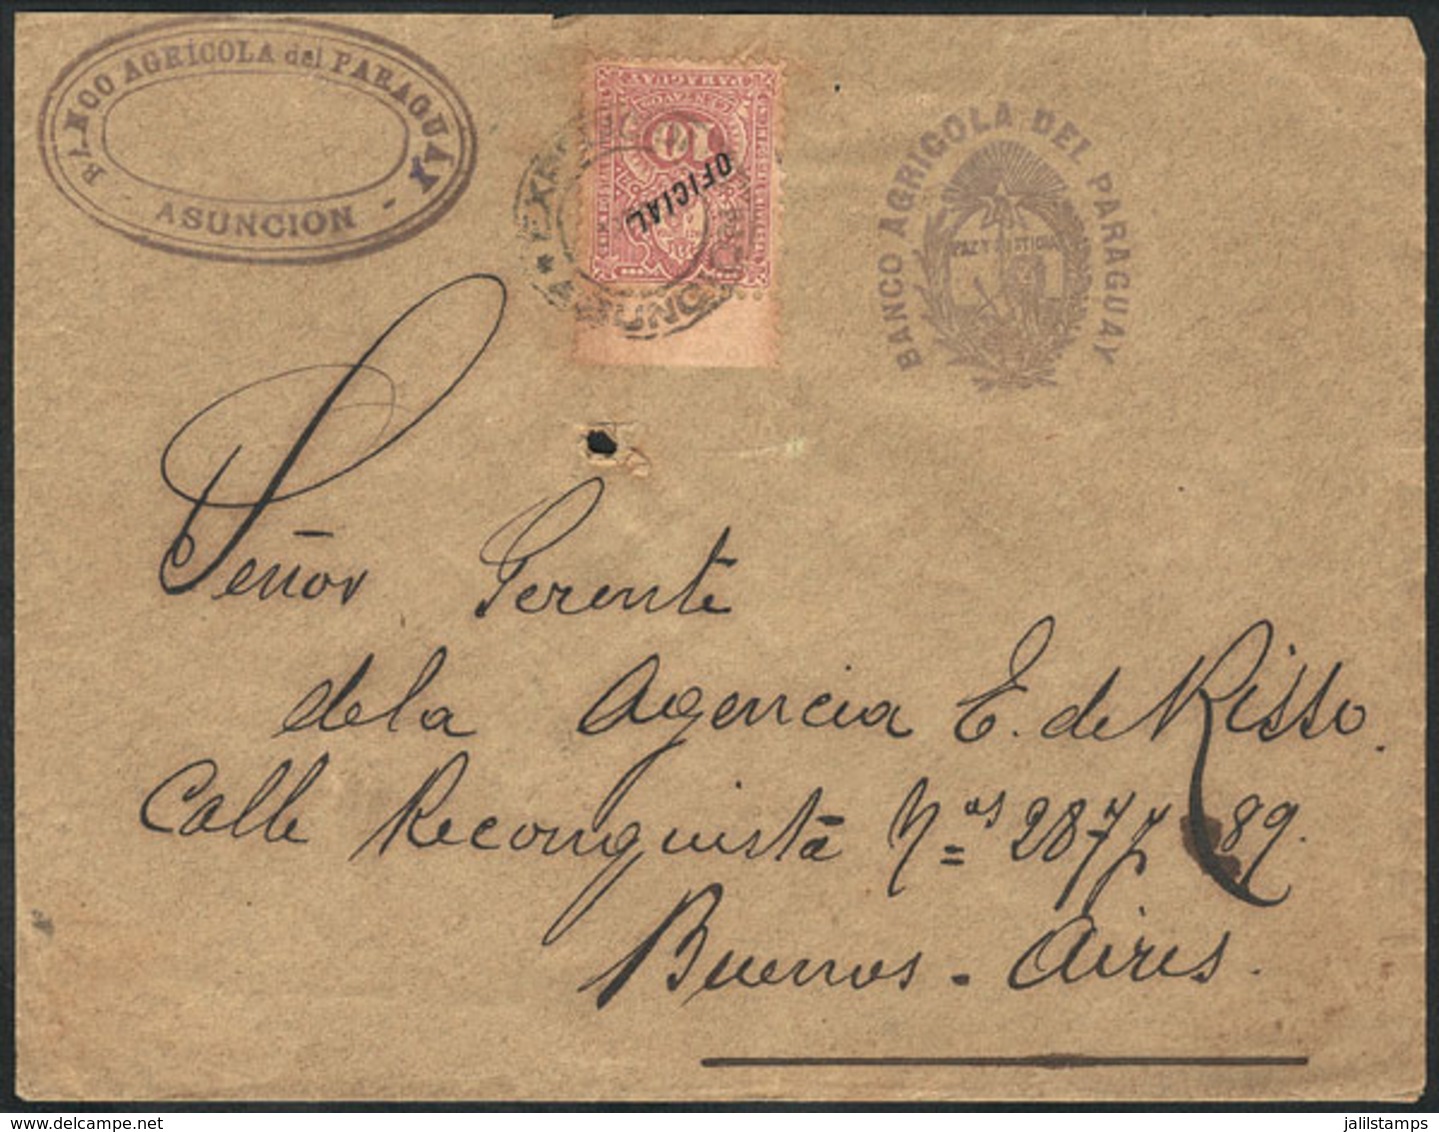 BANCO AGRÍCOLA del PARAGUAY
- ASUNCION -
PARAGUAY
10
OFICIAL
BANCO AGRICOLA DEL PARAGUAY
PAZ Y JUSTICIA
Señor Gerente
dela Agencia E. de Risso.
Calle Reconquista Nos 287 y 89.
Buenos - Aires.
jalilstamps